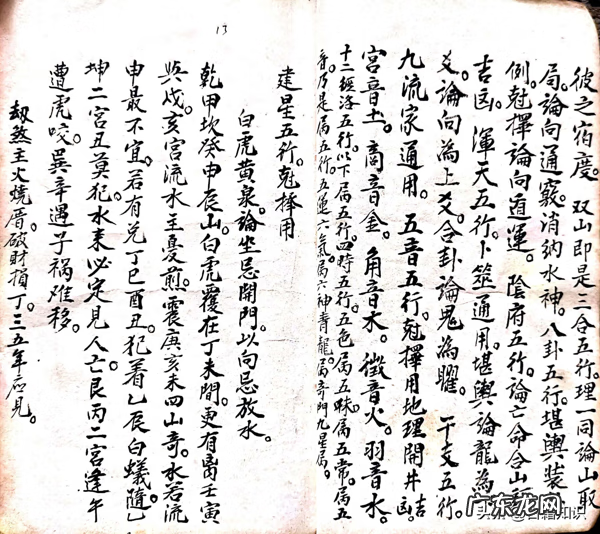 彼之宿度。双山即是三合五行。理一同論山取
局。論向通竅。消納水神。八卦五行。堪輿裝
例。尅擇論向通運。陰府五行。論亡命合山
吉凶。渾天五行。卜筮通用。堪輿論龍為
爻。論向為上爻。合卦論鬼為曜。干支五行。
九流家通用。五音五行。尅擇用地理開井吉凶。
宮音土。商音金。角音木。徵音火。羽音水。
十二經淫五行。以下屬五行。四時五行。五色屬五味。屬五常。屬五
音。乃是屬五行。五蟲六氣。屬六神青龍。屬奇門九星屬。
建星五行。尅擇用
13
白虎黃泉。論坐忌開門。以向忌放水。
乾甲坎癸申辰山。白虎覆在丁未間。更有离壬寅
與戌。亥宮流水主憂煎。震庚亥未四山奇。水若流
申最不宜。若有兑丁巳酉丑。犯着乙辰白蟻隨。
坤二宮丑莫犯。水来必定見人亡。艮丙二宮逢午
遭虎咬。巽辛遇子禍难移。
劫煞主火燒厝。破財損丁。三五年后見。
头条 古籍知识
广东龙网